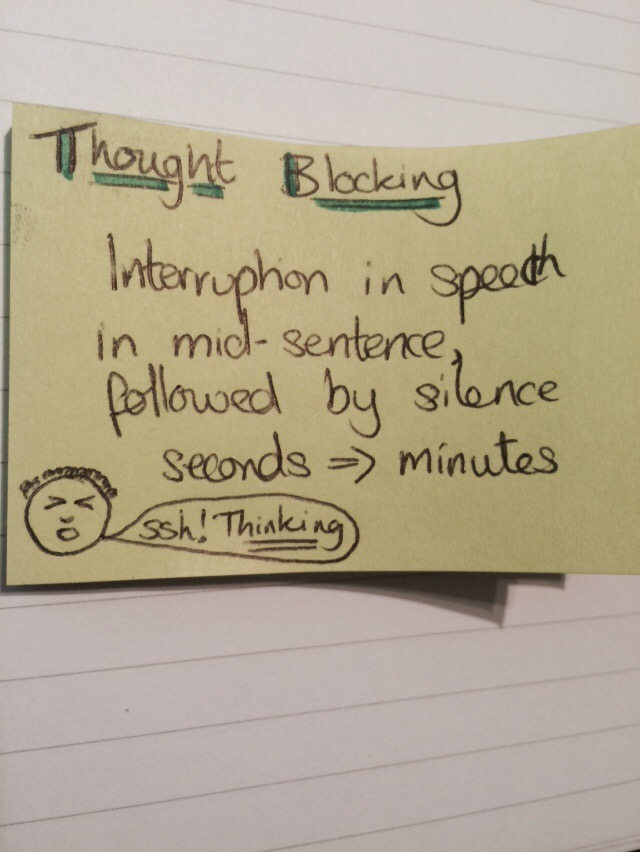 Thought Blocking
Interruption in speech
in mid-sentence,
followed by silence
seconds => minutes
ssh! Thinking